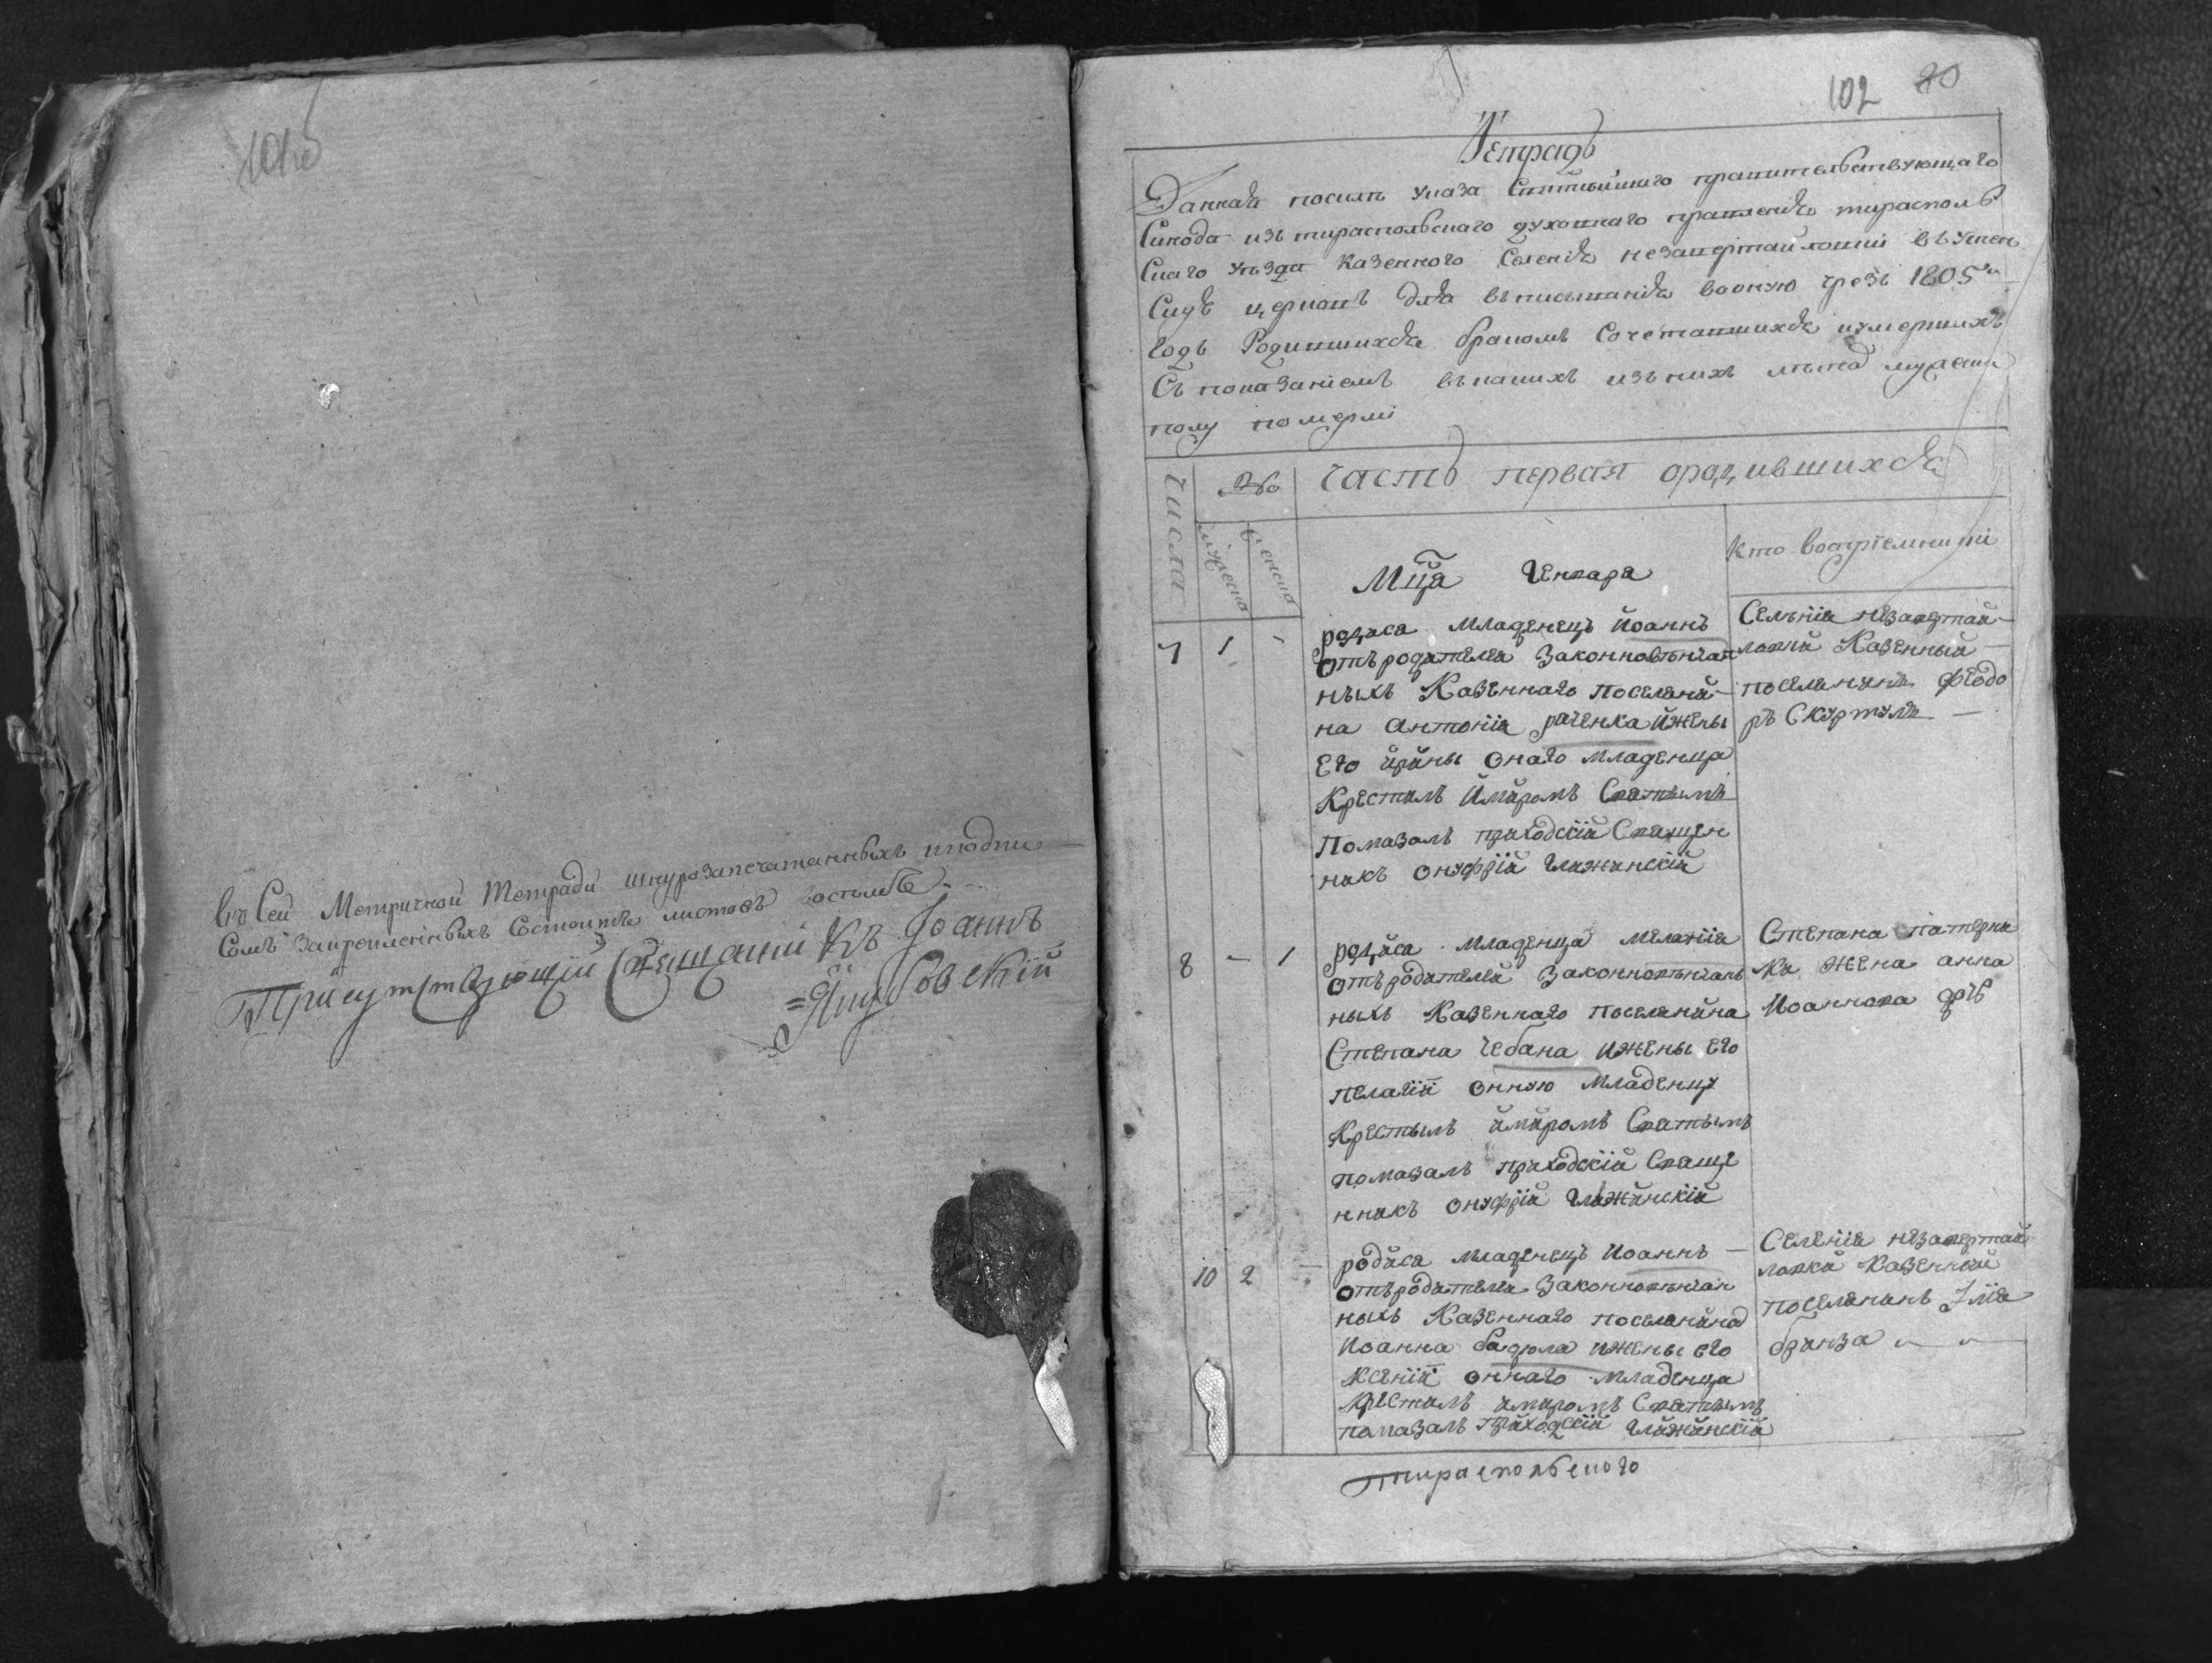 101об
въ Сей Метричной тетради шнурозапечатанныхъ иподпи
Сомъ Закрепленныхъ Состоитъ листовъ восемь
Присутствующій Священникъ Іоаннъ
Якубовскій
102 20
Тетрадь
Данная посилѣ указа Святѣйшаго правительствующаго
Синода изъ тираспольскаго духовнаго правленія тирасполь
Скаго уѣзда Казенного Селенія незавертайловки въ Успен
Скую церковъ для вписыванія вооную чрезъ 1805й
годъ Родившихся бракомъ Сочетавшихся иумершихъ
Съ показаніемъ въ какихъ изъ нихъ лѣта мужеска
полу померли
числа
№о
мужеска
женска
часть первая ородившихся
Мца Генваря
Кто воспріемники
7 1 -
родися Младенецъ Иоаннъ
отъ родителей Законновѣнчан
ныхъ Казеннаго поселяни-
на Антонія раченка ижены
Его ирины онаго младенца
Крестилъ имиромъ Святымъ
Помазалъ приходскій Священ
никъ онуфрій Глижинскій
Селенія незавертай-
ловки Казенный
поселянинъ феодо
ръ Скуртулъ
8 - 1
родися Младенца меланія
отъ родителей Законновѣнчан
ныхъ Казеннаго поселянина
Степана Чебана ижены Его
пелагіи онную младенцу
Крестилъ имиромъ Святымъ
помазалъ приходскій Свяще
нникъ онуфрій Глижинскій
Степана патерна
ка жена анна
Иоаннова дчь
10 2 -
родися младенецъ Иоаннъ
отъ родителей Законновѣнчан
ныхъ Казеннаго поселянина
Иоанна бадюла ижены его
Ксеніи оннаго младенца
крестилъ имиромъ Святымъ
помазалъ приходскій Глижинскій
Селенія незавертай
ловки Казенный
поселянинъ Ілія
бринза
тираспольского